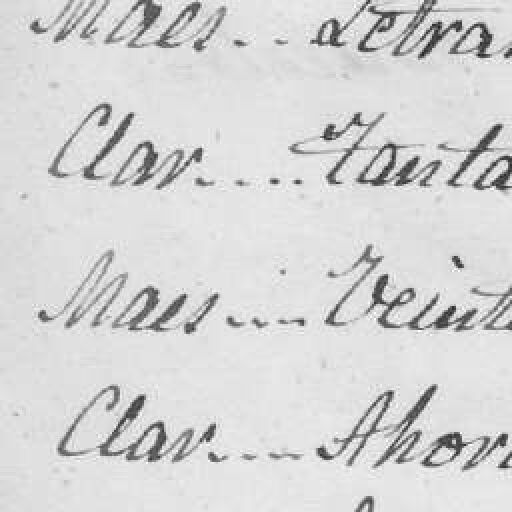 Maes... Letra
Clar..... Tanta
Maes.... Veint
Clar..... Ahor